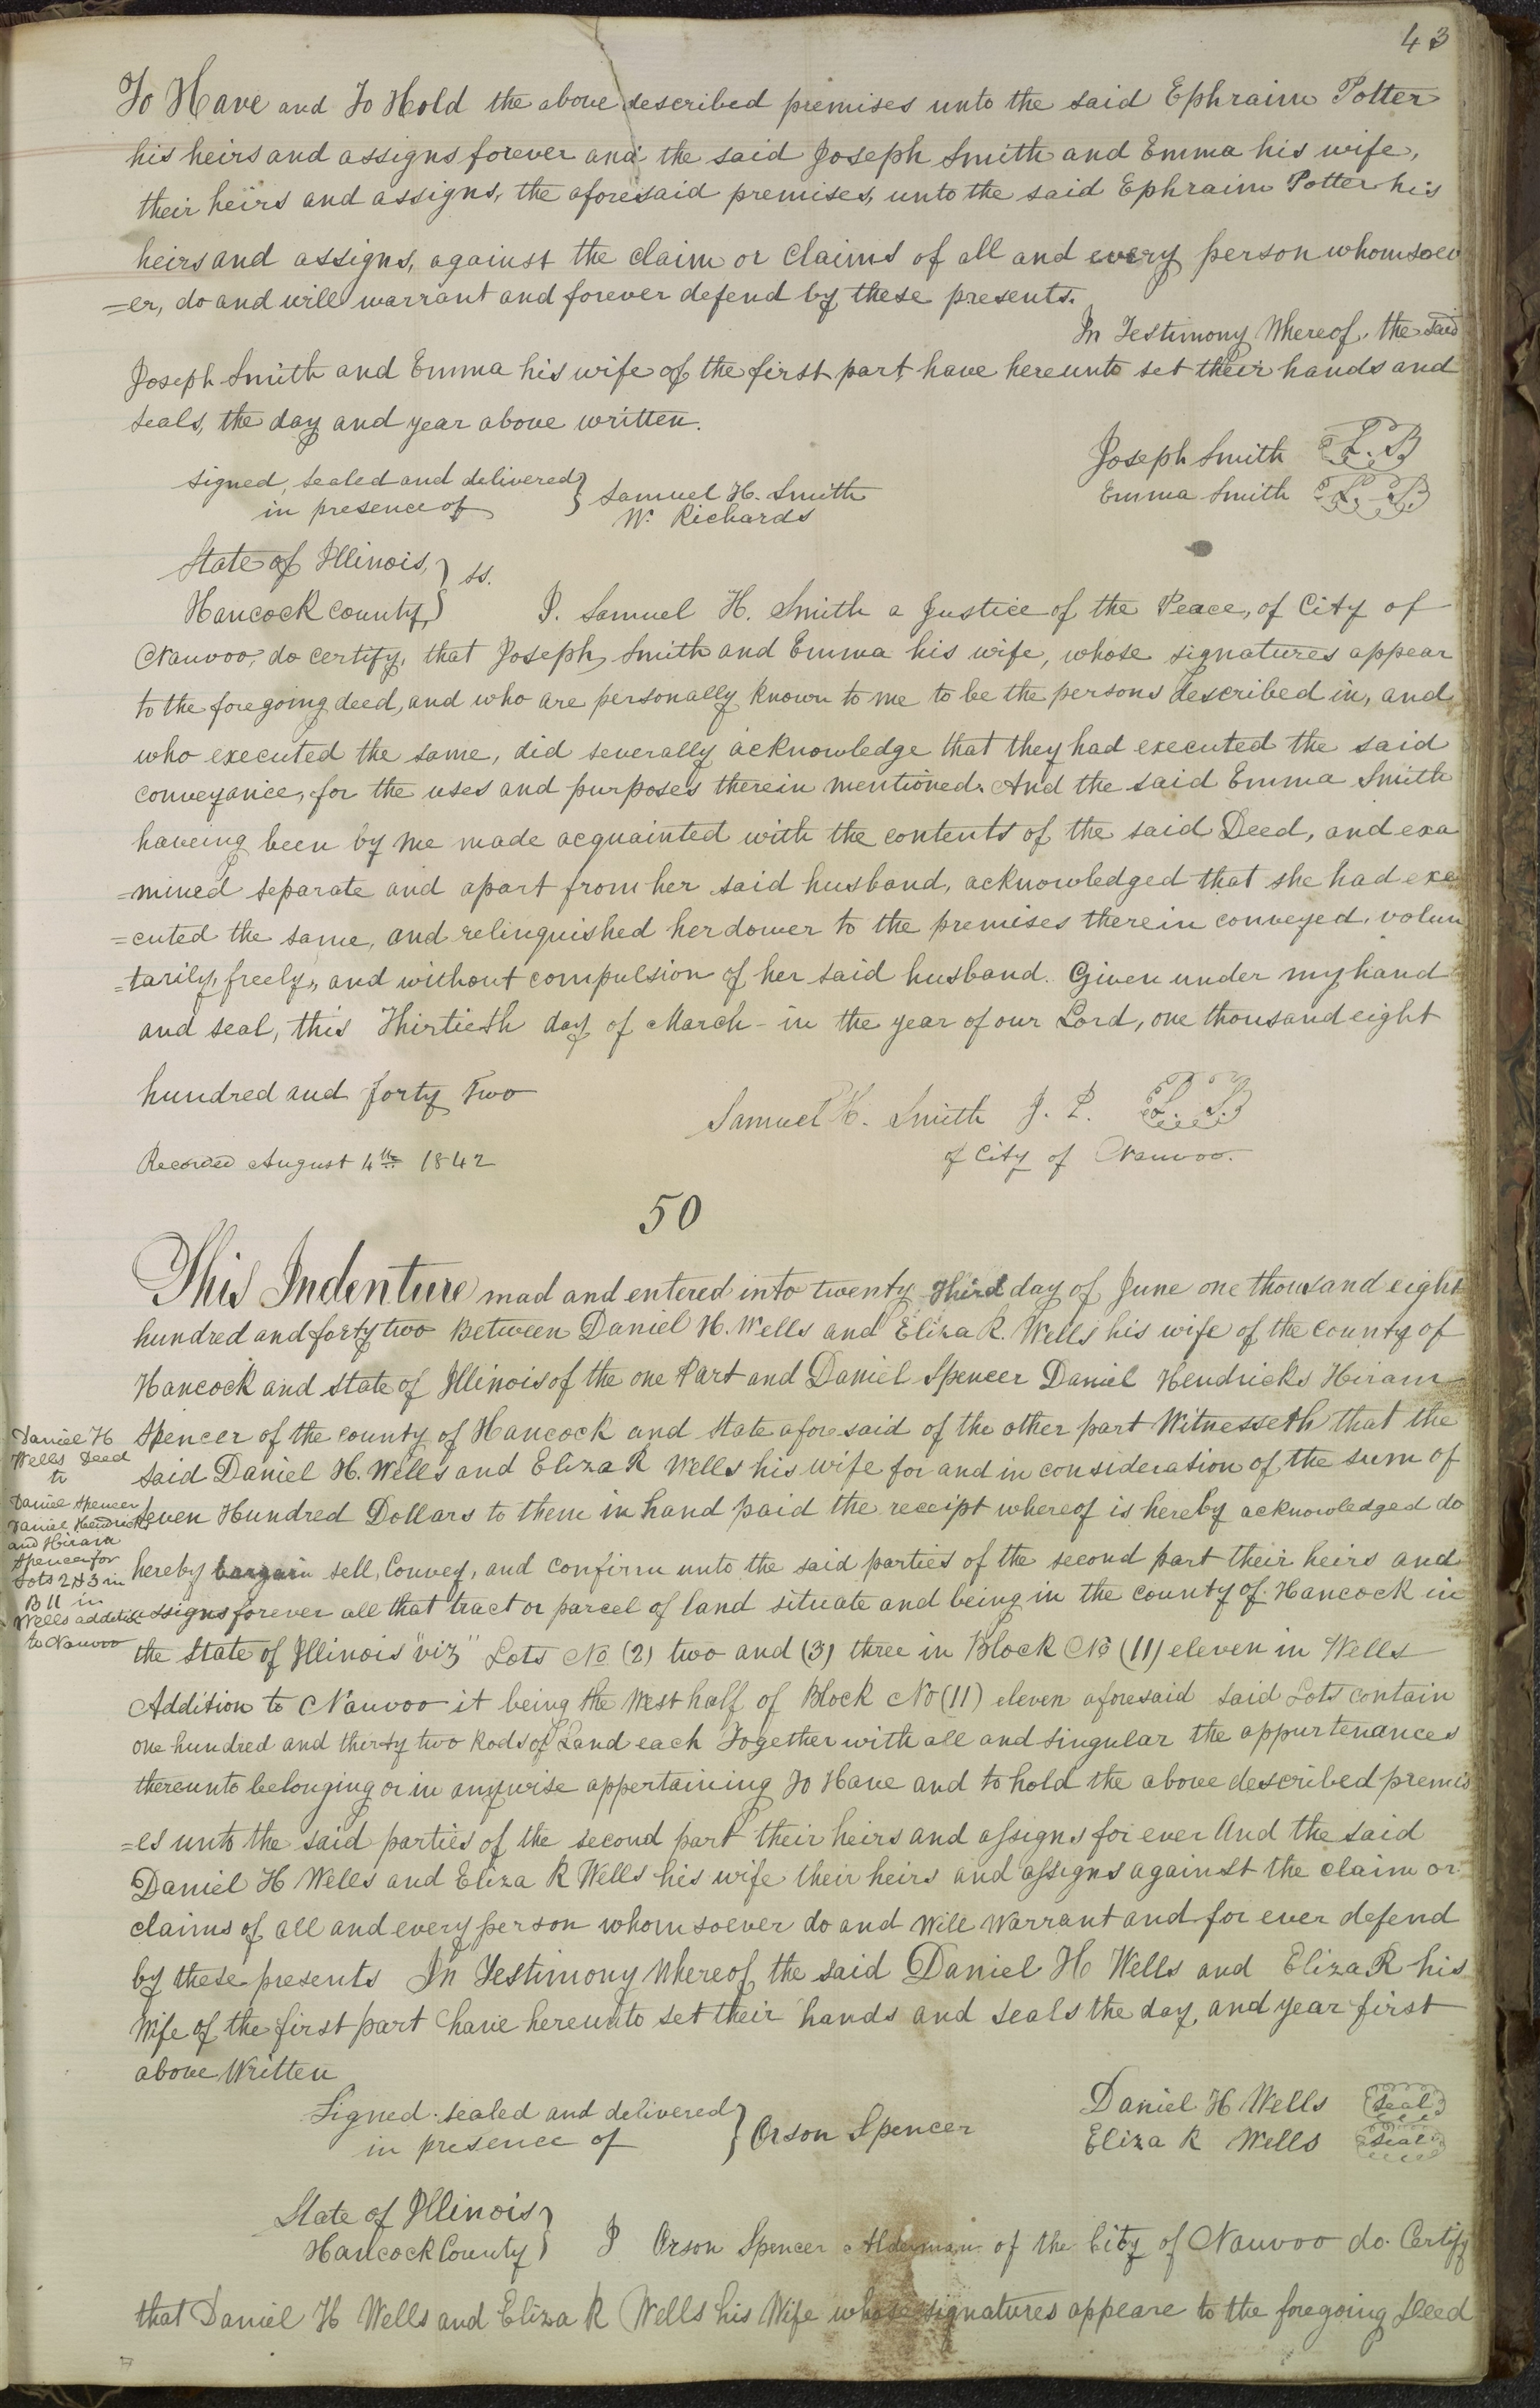 43
To Have and To Hold the above described premises unto the said Ephraim Potter
his heirs and assigns forever and the said Joseph Smith and Emma his wife,
their heirs and assigns, the aforesaid premises, unto the said Ephraim Potter his
heirs and assigns, against the claim or claims of all and every person whomsoev
=er, do and will warrant and forever defend by these presents.
In Testimony Whereof, the said
Joseph Smith and Emma his wife of the first part, have hereunto set their hands and
seals, the day and year above written.
Joseph Smith L.S
Emma Smith L.S
signed, sealed and delivered } Samuel H. Smith
in presence of W. Richards
State of Illinois, } ss.
Hancock County, I. Samuel H. Smith a Justice of the Peace, of City of
Nauvoo, do certify, that Joseph Smith and Emma his wife, whose signatures appear
to the foregoing deed, and who are personally known to me to be the persons described in, and
who executed the same, did severally acknowledge that they had executed the said
conveyance, for the uses and purposes therein mentioned. And the said Emma Smith
haveing been by me made acquainted with the contents of the said Deed, and exa
=mined separate and apart from her said husband, acknowledged that she had exe
=cuted the same, and relinquished her dower to the premises therein conveyed, volun
=tarily, freely, and without compulsion of her said husband. Given under my hand
and seal, this Thirtieth day of March - in the year of our Lord, one thousand eight
hundred and forty Two
Samuel H. Smith J. P. L.S.
of City of Nauvoo.
Recorded August 4th 1842
50
This Indenture mad and entered into twenty third day of June one thousand eight
hundred and forty two Between Daniel H. Wells and Eliza R. Wells his wife of the county of
Hancock and state of Illinois of the one Part and Daniel Spencer Daniel Hendricks Hiram
Spencer of the county of Hancock and State aforesaid of the other part Witnesseth that the
said Daniel H. Wells and Eliza R Wells his wife for and in consideration of the sum of
seven Hundred Dollars to them in hand paid the receipt whereof is hereby acknowledged do
hereby bargain sell, Convey, and confirm unto the said parties of the second part their heirs and
assigns forever all that tract or parcel of land situate and being in the county of Hancock in
the State of Illinois "viz" Lots No (2) two and (3) three in Block No (11) eleven in Wells
Addition to Nauvoo it being the West half of Block No (11) eleven aforesaid said Lots contain
one hundred and thirty two Rods of Land each Together with all and singular the appurtenances
thereunto belonging or in anywise appertaining To Have and to hold the above described premis
=es unto the said parties of the second part their heirs and assigns for ever And the said
Daniel H Wells and Eliza R Wells his wife their heirs and assigns against the claim or
claims of all and every person whomsoever do and Will Warrant and for ever defend
by these presents In Testimony Whereof the said Daniel H Wells and Eliza R his
Wife of the first part have hereunto set their hands and seals the day, and year first
above Written
Daniel H Wells seal
Eliza R Wells seal
Signed sealed and delivered } Orson Spencer
in presence of
State of Illinois }
Hancock County I Orson Spencer Alderman of the City of Nauvoo do Certify
that Daniel H Wells and Eliza R Wells his Wife whose signatures appeare to the foregoing Deed
Daniel H
Wells Deed
to
Daniel Spencer
Daniel Hendricks
and Hiram
Spencer for
Lots 2 & 3 in
B 11 in
Wells addition
to Nauvoo